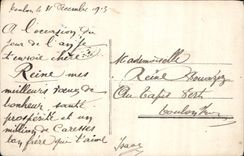 Toulon le 31 Decembre 1913
A l'occasion du
jour de l'an je
t'envoie chère
Reine mes
meilleurs vœux de
bonheur santé
prospérité et un
million de Caresses
ton frère qui t'aime
Isaac
Mademoiselle
Reine
Au Tapis Vert
Toulon